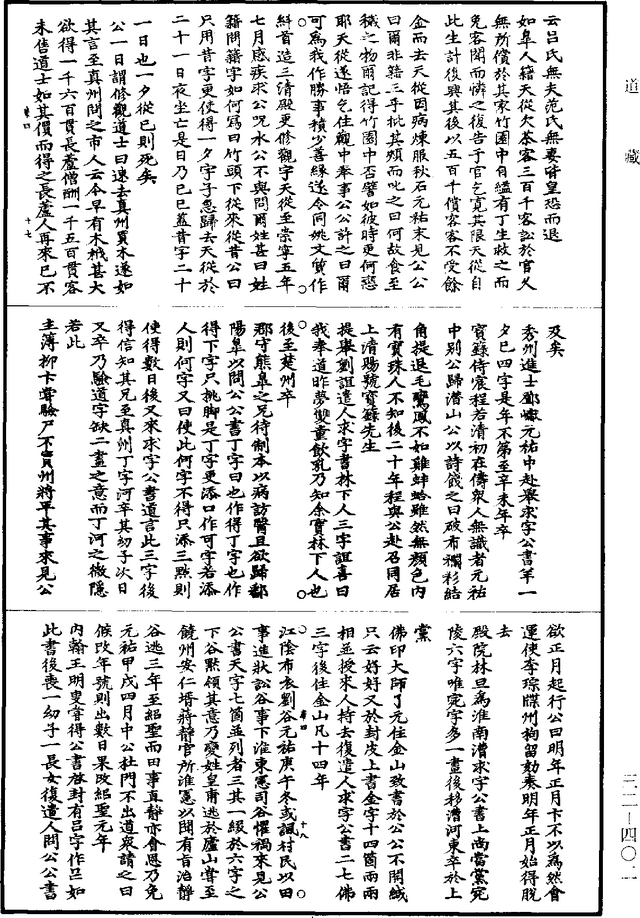 道藏
云吕氏無夫范氏無妻皆皇恐而退
如皐人籍天從欠茶客三百千客訟於官久
無所償於其家竹園中自縊有丁生救之而
免客聞而憐之復告于官乞寬其限天從自
此生計復興其後以五百千償客客不受餘
金而去天從因病煉服秋石元祐末見公公
曰爾非籍三乎批其頰而叱之曰何故食至
穢之物爾記得竹園中否譬如彼時更何惡
耶天從遂悟乞住觀中奉事公公許之曰爾
可爲我作勝事積少善緣遂令同姚文貸作
斜首造三清殿更修觀宇天從至崇寧五年
七月感疾求公呪水公不與問爾姓甚曰姓
籍問籍字如何寫曰竹頭下從來從昔公曰
只用昔字更使得一夕字子急歸去天從於
二十一日夜坐亡是日乃己巳蓋昔字二十
一日也一夕從巳則死矣
公一日謂修觀道士曰速去真州買木遂如
其言至真州問之市人云今早有木栰甚大
欲得一千六百貫長蘆僧酬一千五百貫客
未售道士如其價而得之長蘆人再來已不
及矣
秀州進士鄧㠓元祐中赴舉求字公書羊一
夕巳四字是年不第至辛未年卒
寶籙侍宸程若清初在儔衆人無識者元祐
中别公歸潛山公以詩餞之曰破布襴衫結
角提退毛鸞鳳不如雞蚌蛤雖然無顏色内
有寳珠人不知後二十年程與公赴召同居
上清賜號寳籙先生
提舉劉誼遣人求字書林下人三字誼喜曰
我奉道昨夢雙童飲乳乃知余寳林下人也
後至楚州卒
郡守熊皐之兄待制本以病訪醫且欲歸鄱
陽皐以問公公書丁字曰也作得丁字也作
得下字只挑脚是丁字更添口作可字若添
人則何字又曰使此何字不得只添三點則
使得數日後又來求字公書道言此三字後
得信知其兄至真州丁字河卒其幼子次日
又卒乃驗道字缺二畫之意而丁河之微隱
若此
主薄柳卞常驗尸不實州將平其事來見公
欲正月起行公曰明年正月卞不以爲然會
運使李琮牒州拘留勀奏明年正月始得脱
去
殿院林旦爲淮南漕求字公書上尚當黨宛
陵六字唯宛字多一畫後移漕河東卒於上
黨
佛印大師了元住金山致書於公公不開緘
只云好好又於封皮上書金字十四箇兩兩
相並授來人持去復遣人求字公書二七佛
三字後住金山凡十四年
江陰布衣劉谷元祐庚午冬或諷村民以田
事進狀訟谷事下淮東憲司谷懼禍來見公
公書天字七箇並列者三其一綴於六字之
下谷黙領其意乃變姓皇甫逃於廬山嘗至
饒州安仁壻蔣静官所淮憲以聞有旨治靜
谷逃三年至紹聖而田事直靜亦會恩乃免
元祐甲戌四月中公杜門不出道衆請之曰
候改年號則出數日果改紹聖元年
内翰王明叟嘗得公書啟封有吕字作吕如
此書後喪一幼子一長女復遣人問公公書
三二—四〇二